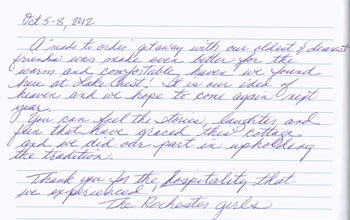 Oct 5-8, 2012
A "made to order" getaway with our oldest & dearest
friends was made even better for the
warm and comfortable haven we found
here at Lake Chest! It is our idea of
heaven and we hope to come again next
year.
You can feel the stories, laughter, and
fun that have graced this cottage
and we did our part in upholding
the tradition.
Thank you for the hospitality that
we experienced!
The Rochester girls